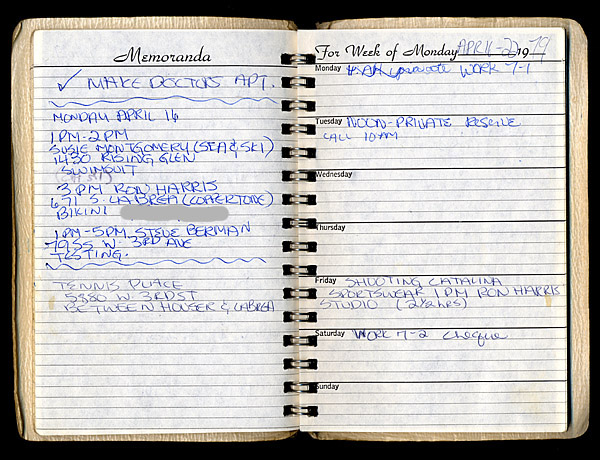 Memoranda
✓ MAKE DOCTORS APT.
MONDAY APRIL 16
1PM-2PM
SUSIE MONTGOMERY (SEA & SKI)
1430 RISING GLEN
SWIMSUIT
3 PM RON HARRIS
671 S. LABREA (COPERTONE)
BIKINI
1PM-5PM STEVE BERMAN
7955 W. 3RD AVE
TESTING.
TENNIS PLACE
5880 W. 3RD ST
BETWEEN HOUSER & LABREA
For Week of Monday APRIL-22 1979
Monday WORK 7-1
Tuesday NOON-PRIVATE RESCUE
CALL 10AM
Wednesday
Thursday
Friday SHOOTING CATALINA
SPORTSWEAR 1PM RON HARRIS
STUDIO (2 1/2 hrs)
Saturday WORK 7-2 Cheque
Sunday